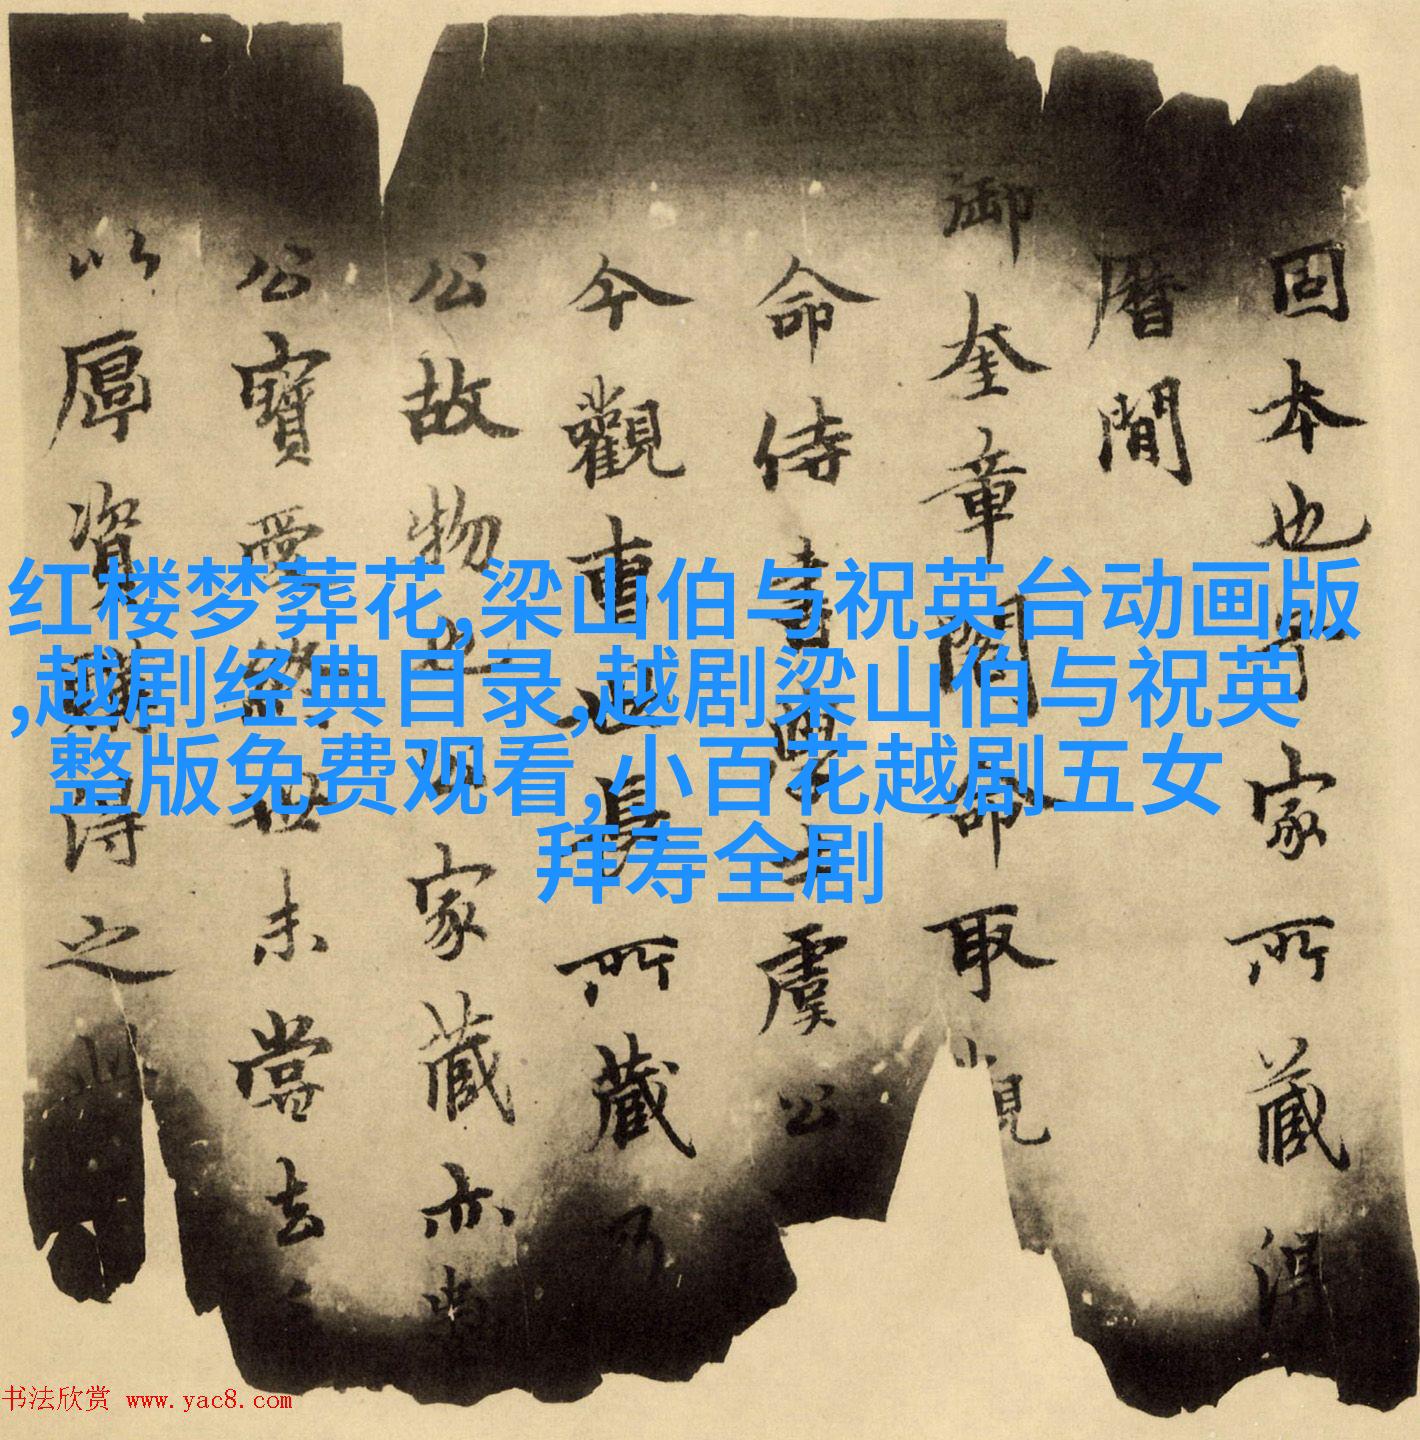 红楼梦葬花,梁山伯与祝英台动画版
,越剧经典目录,越剧梁山伯与祝英
整版免费观看,小百花越剧五女
拜寿全剧
固本也家所藏得
曆閒
御奎章閣命取觀
命侍書學士虞公
今觀曹世長所藏乃
公故物也家藏亦
公寶愛未嘗去
以厚資購得之
书法欣赏 www.yac8.com